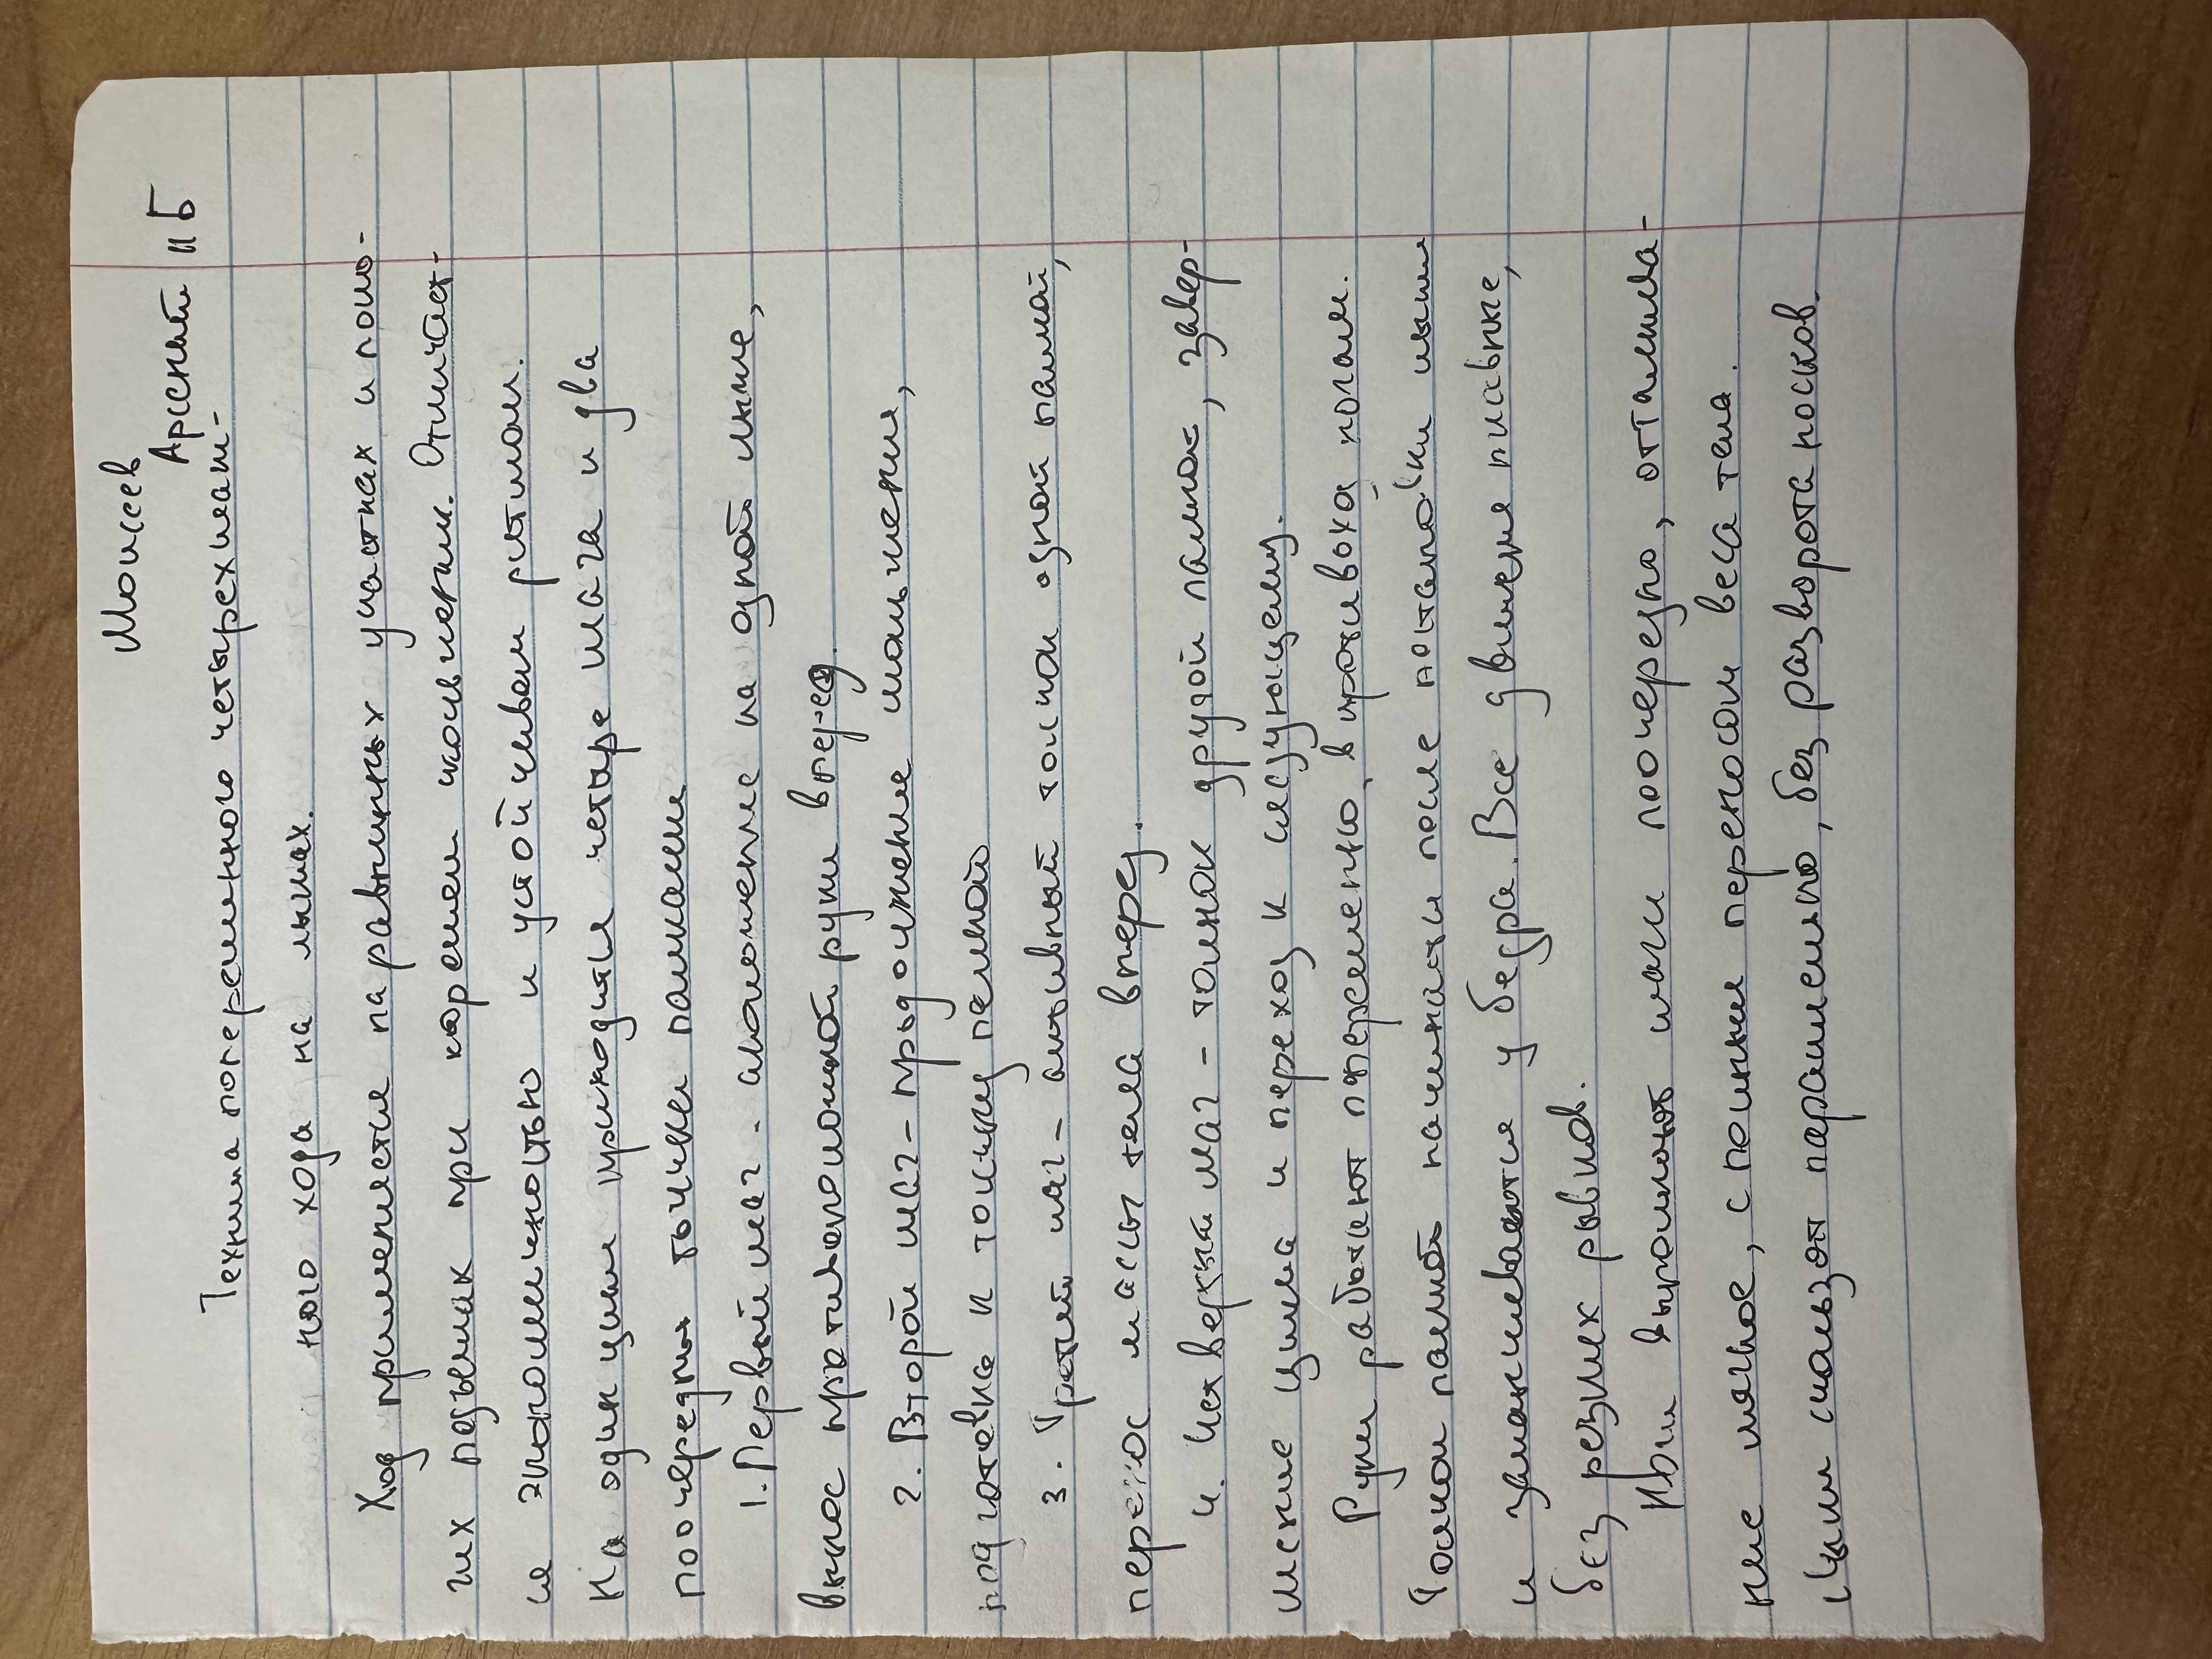 Моисеев
Арсений 11Б
Техника попеременного четырехшаж-
ного хода на лыжах.
Ход применяется на равнинных участках и поло-
гих подъемах при хорошем скольжении. Отличает-
ся экономичностью и устойчивым ритмом.
На один цикл приходится четыре шага и два
поочередных толчка палками
1. Первый шаг - скольжение на одной лыже,
вынос противоположной руки вперед.
2. Второй шаг - продолжение скольжения,
подготовка к толчку палкой
3. Третий шаг - активный толчок одной палкой,
перенос массы тела вперед.
4. Четвертый шаг - толчок другой палкой, завер-
шение цикла и переход к следующему.
Руки работают попеременно, в противоход ногам.
Толчок палкой начинается после постановки лыжи
и заканчивается у бедра. Все движения плавные,
без резких рывков.
Ноги выполняют шаги поочередно, отталкива-
ние мягкое, с полным переносом веса тела.
Лыжи скользят параллельно, без разворота носков.